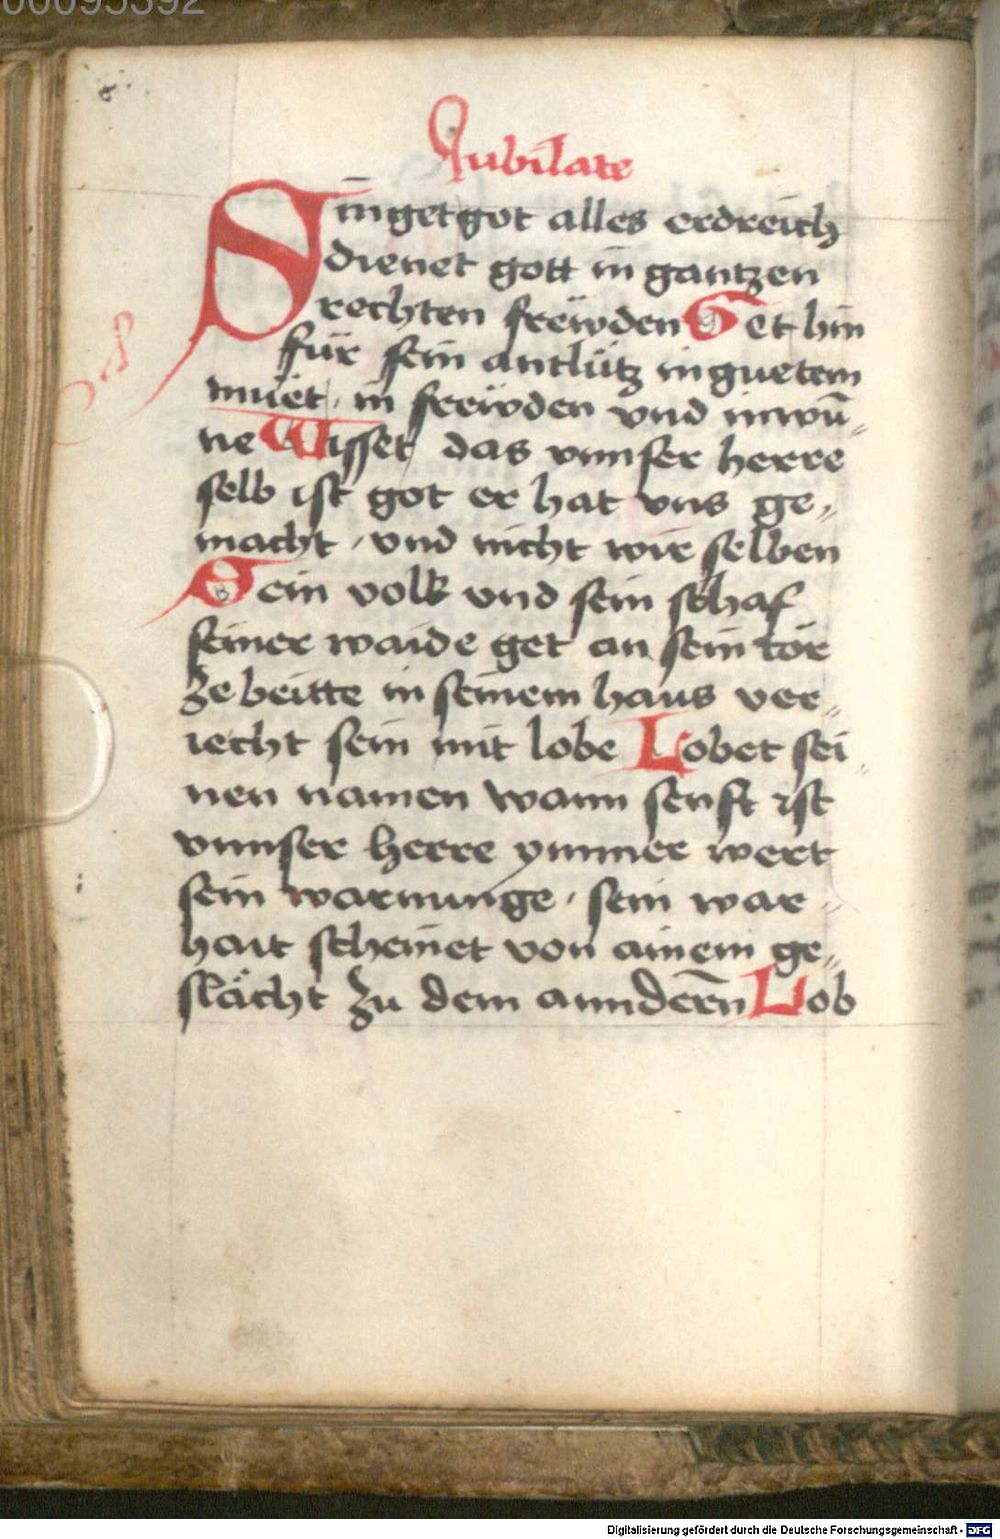 00095392
Iubilate
Singet got alles erdreich
dienet gott in gantzen
rechten freẅden Get hin
für sein antlütz in guetem
müet, in freẅden vnd in wū„
ne Wisset das vnnser herre
selb ist got er hat vns ge„
macht, vnd nicht wir selben
Sein volk vnd sein schaf
seiner waide get an sein tör
ze beitte in seinem haus ver„
iecht sein mit lobe Lobet sei„
nen namen wann senft ist
vnnser herre ymmer wert
sein warnunge, sein war„
hait scheinet von ainem ge„
slächt zu dem annderēn Lob
Digitalisierung gefördert durch die Deutsche Forschungsgemeinschaft - DFG